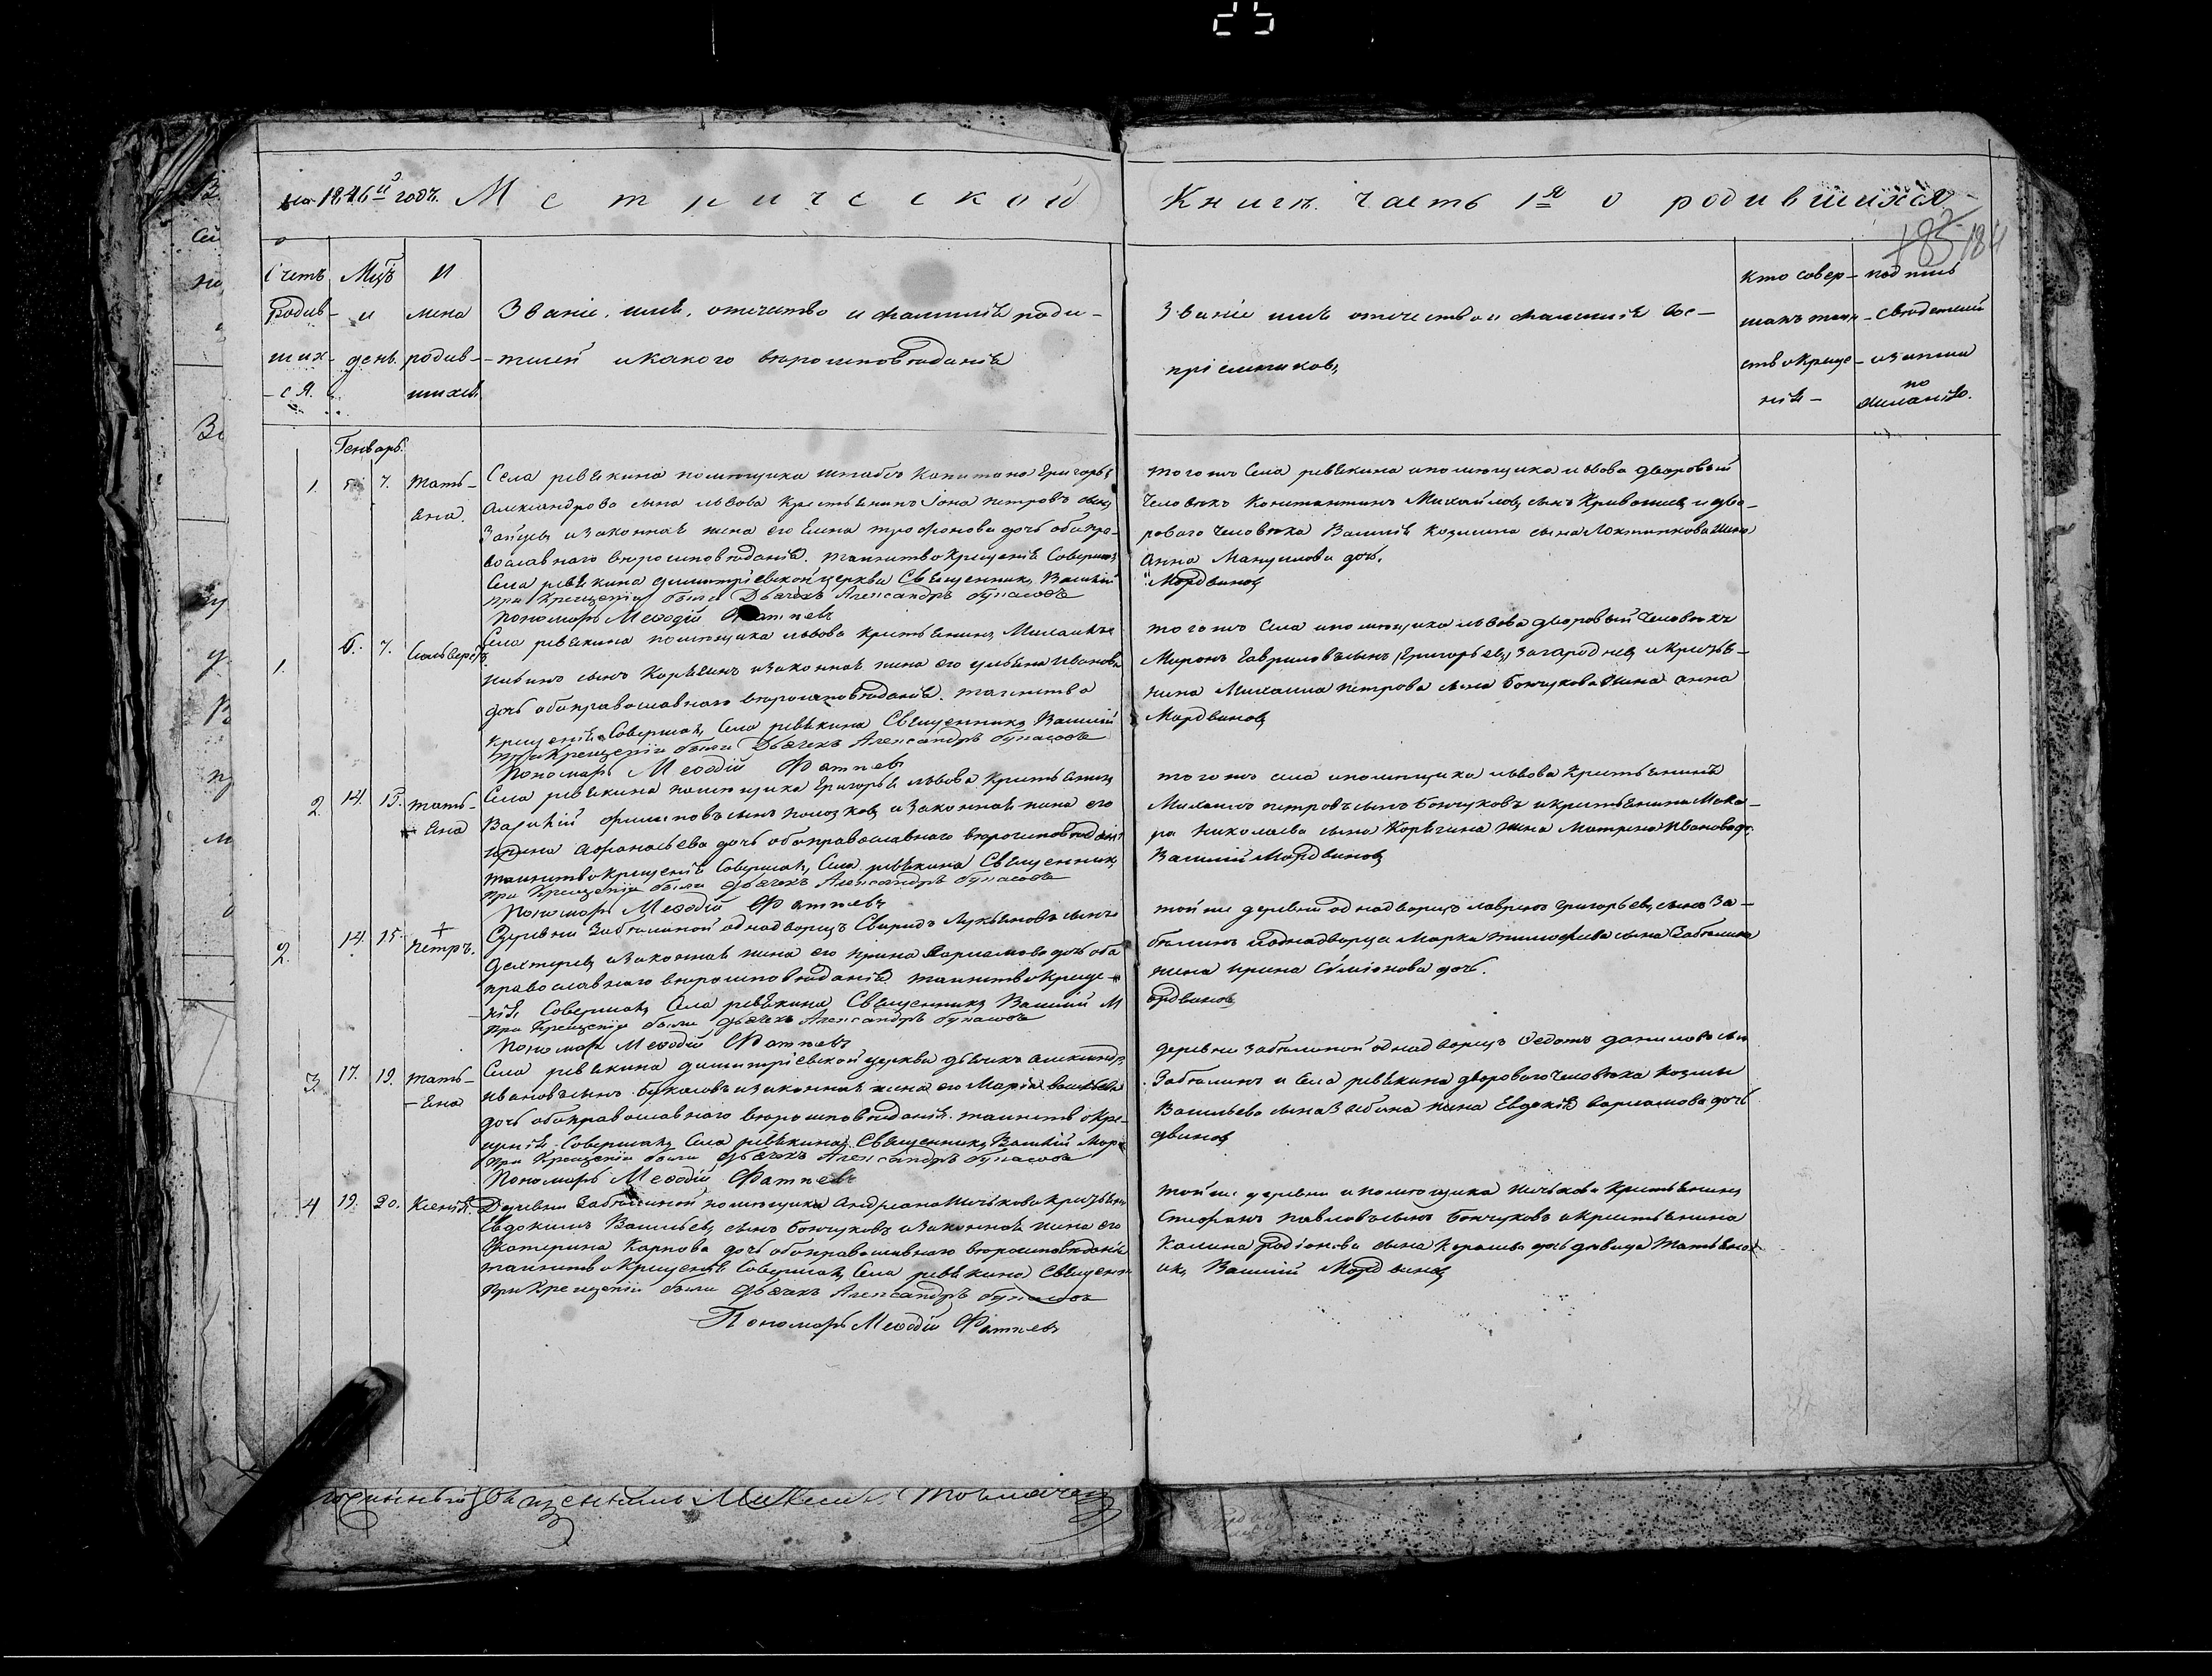 на 1846й годъ. Метрической
Книги часть 1я о родившихся
185 184
Счетъ родив-ших-ся.
Мцъ и день.
Имена родив-шихся.
Званіе, имя, отчество и фамилія роди-
телей и какого вѣроисповѣданія
Званіе имя отечество и фамилія вос-
пріемниковъ,
Кто совер-
шалъ таин-
ство креще-
нія-
подпись
свидетелей
записи
по
желанію.
Генварь.
1. 5. 7. Тать-
яна.
Села ревякина помѣщика штабсъ капитана Григорья
Александрова сына львова крестьянинъ Іона петровъ сынъ
Зайцевъ и законная жена его Елена трофимова дочь оба пра-
вославнаго вѣроисповѣданія. таинство крещенія совершалъ
Села ревякина димитріевской церкви Священникъ Василій
при крещеніи были Дьячекъ Александръ Букасовъ
Пономарь Меѳодій
того жъ Села ревякина и помѣщика львова дворовый
человѣкъ Константинъ Михайловъ сынъ и дво-
роваго человѣка Василія козмина сына жена
Анна дочь.
Мордвиновъ
1. 6. 7.
Села ревякина помѣщика львова крестьянинъ
сынъ Корягинъ и законная жена его ульяна Иванова
дочь оба православнаго вѣроисповѣданія. таинство
крещенія Совершалъ, Села ревякина Священникъ Василій
при крещеніи были Дьячекъ Александръ Букасовъ
Пономарь Меѳодій
того жъ Села и помѣщика львова дворовый человѣкъ
Миронъ Гавриловъ сынъ (Григорьевъ) Загороднев и крестья-
нина Михаила петрова сына Бончукова жена анна
Мордвиновъ
2. 14. 15. Тать-
яна
Села ревякина помѣщика Григорья львова крестьянинъ
Василій филиповъ сынъ и законная жена его
ирина Афанасьева дочь оба православнаго вѣроисповѣданія
таинство крещенія Совершалъ, Села ревякина Священникъ
при крещеніи были дьячекъ Александръ Букасовъ
Пономарь Меѳодій
того жъ села и помѣщика львова крестьянинъ
Михаилъ петровъ сынъ Бончуковъ и крестьянина Мака-
ра Николаева сына Корягина жена Матрена Иванова до:
Василій Мордвиновъ
2. 14. 15. Петръ.
Деревни Забѣлиной однадворецъ Свиридъ Лукьяновъ сынъ
Дехтеревъ и законная жена его ирина варламова дочь оба
православнаго вѣроисповѣданія. таинство креще-
нія, Совершалъ, Села ревякина Священникъ Василій М
при крещеніи были дьячекъ Александръ Букасовъ
Пономарь Меѳодій
той же деревни однадворецъ григорьевъ сынъ За-
бѣлинъ и однадворца Марка тимофеева сына Забѣлина
жена ирина Симіонова дочь.
ордвиновъ
3. 17. 19. Тать-
-яна
Села ревякина димитріевской церкви дьячекъ александръ
ивановъ сынъ Букасовъ и законная жена его Марія
дочь оба православнаго вѣроисповѣданія. таинство кре-
щенія Совершалъ, Села ревякина, Священникъ, Василій Мор
при крещеніи были дьячекъ Александръ Букасовъ
Пономарь Меѳодій
деревни Забѣлиной однадворецъ Ѳедотъ даниловъ сын
Забѣлинъ и Села ревякина двороваго человѣка козмы
Васильева сына жена Евдокія варламова дочь
двиновъ
4 19. 20. Ксенія.
Деревни Забѣлиной помѣщика андреяна крестьян
Евдокимъ Васильевъ сынъ Бончуковъ и законная жена его
Екатерина Карпова дочь оба православнаго вѣроисповѣданія
таинство крещенія Совершалъ, Села ревякина Священ
при крещеніи были дьячекъ Александръ Букасовъ
Пономарь Меѳодій
той же деревни и помѣщика крестьянинъ
Стефанъ павловъ сынъ Бончуковъ и крестьянина
Калина родіонова сына дочь девица татьяна
икъ, Василій Мордвиновъ